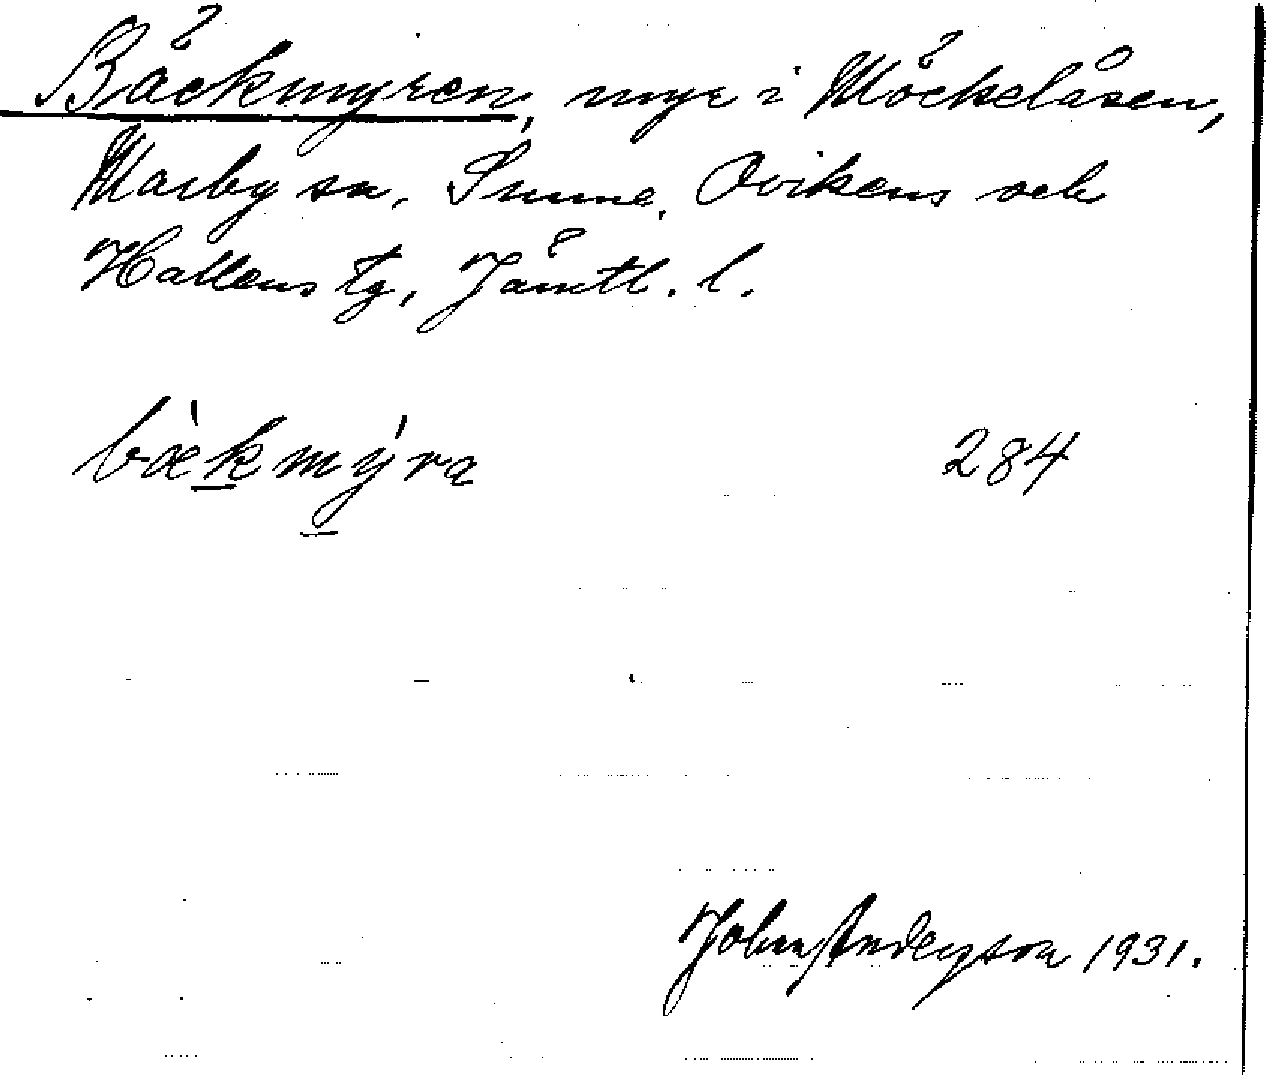 Bäckmyren, myr i Möckelåsen,
Marby sn, Sunne, Ovikens och
Hallens tg, Jämtl. l.
bækmýra 284
John Anderson 1931.